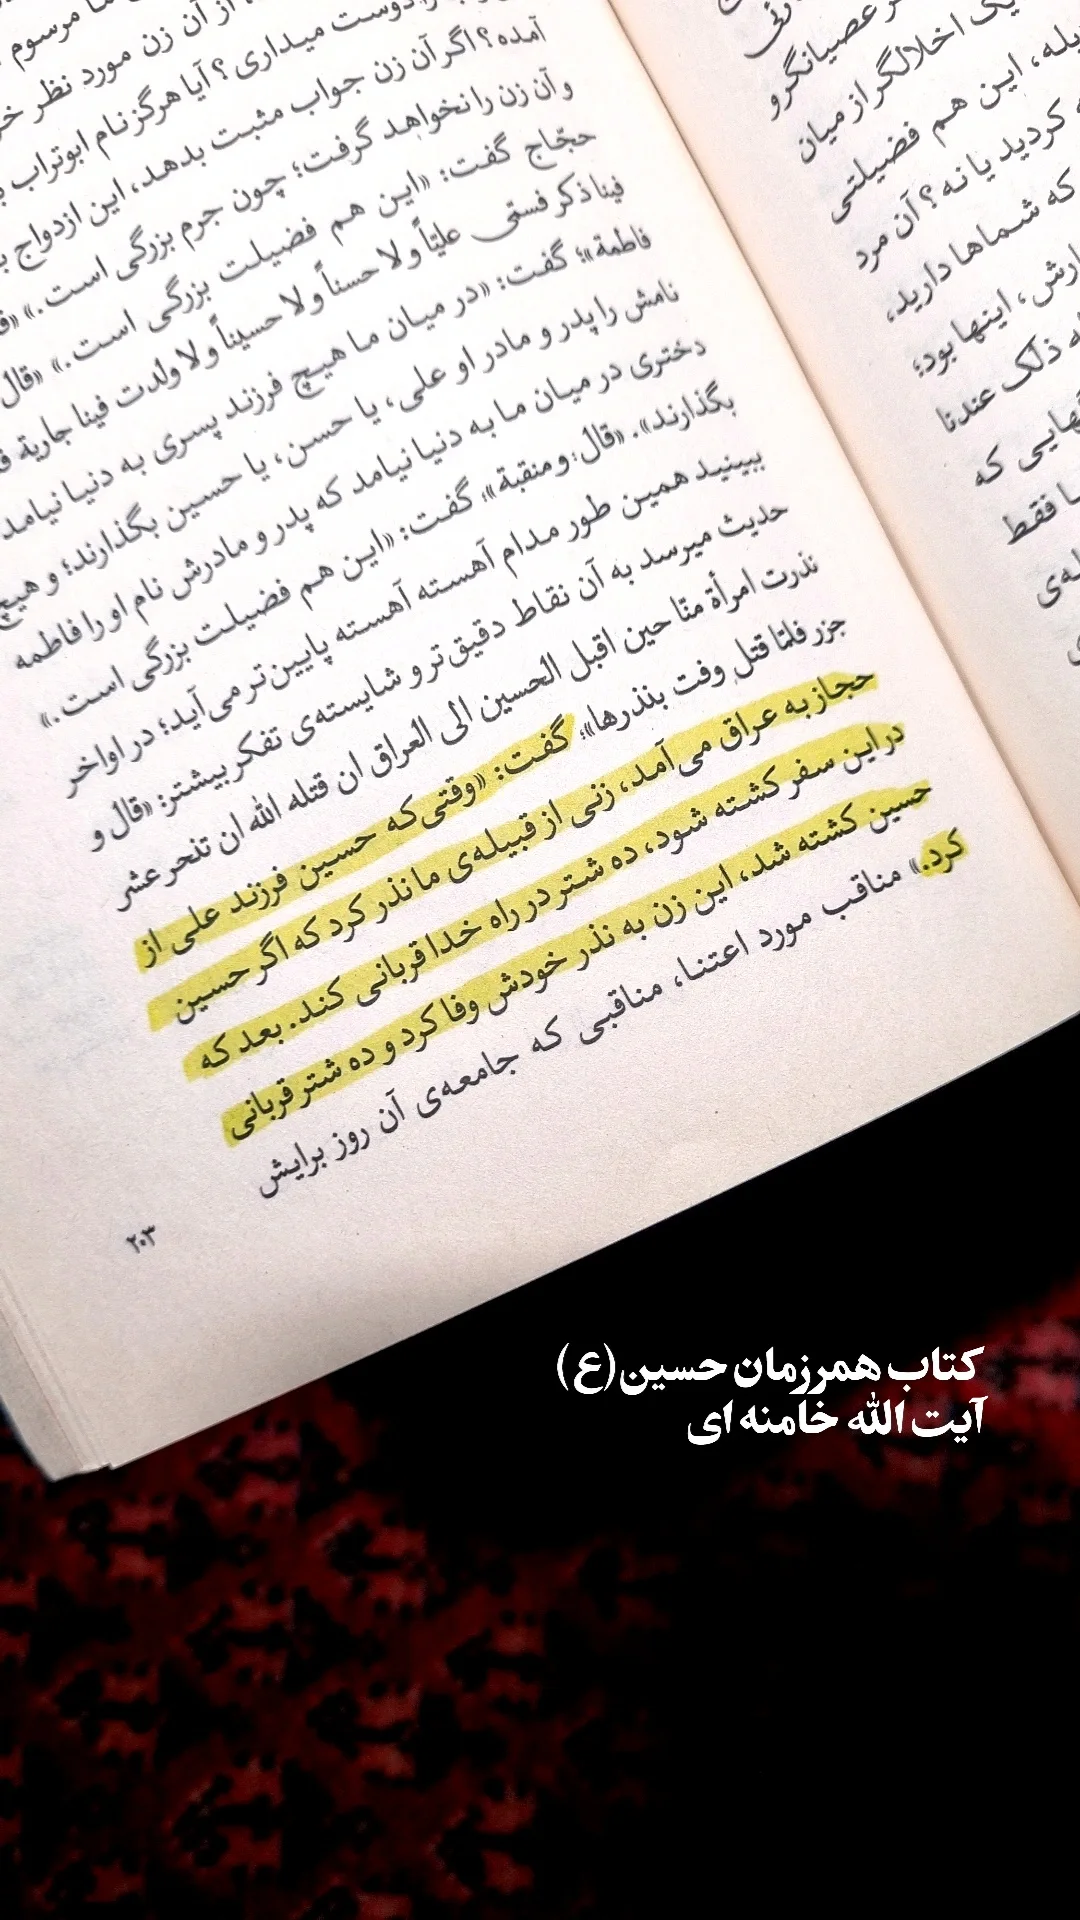 ما مرسوم
از آن زن مورد نظر
دوست میداری؟ آیا هرگز نام ابوتراب
آمده؟ اگر آن زن جواب مثبت بدهد، این ازدواج
و آن زن را نخواهد گرفت؛ چون جرم بزرگی است.»
حجّاج گفت: «این هم فضیلت بزرگی است.» «قال
فینا ذکر فسمّی علیّاً و لا حسناً و لا حسیناً و لا ولدت فینا جاریة
فاطمة»؛ گفت: «در میان ما هیچ فرزند پسری به دنیا نیامد
نامش را پدر و مادر او علی، یا حسن، یا حسین بگذارند؛ و هیچ
دختری در میان ما به دنیا نیامد که پدر و مادرش نام او را فاطمه
بگذارند». «قال: و منقبة»؛ گفت: «این هم فضیلت بزرگی است.»
ببینید همین طور مدام آهسته آهسته پایین‌تر می‌آید؛ در اواخر
حدیث میرسد به آن نقاط دقیق‌تر و شایسته‌ی تفکر بیشتر: «قال و
نذرت امرأة منّا حین اقبل الحسین الی العراق ان قتله الله ان تنحر عشر
جزر فلمّا قتل وفت بنذرها»؛ گفت: «وقتی که حسین فرزند علی از
حجاز به عراق می‌آمد، زنی از قبیله‌ی ما نذر کرد که اگر حسین
در این سفر کشته شود، ده شتر در راه خدا قربانی کند. بعد که
حسین کشته شد، این زن به نذر خودش وفا کرد و ده شتر قربانی
کرد.» مناقب مورد اعتنا، مناقبی که جامعه‌ی آن روز برایش
۲۰۳
عصیانگر و
یک اخلالگر از میان
این هم فضیلتی
کردید یا نه؟ آن مرد
که شماها دارید،
اینها بود؛
ذلک عندنا
که
فقط
کتاب همرزمان حسین(ع)
آیت الله خامنه ای